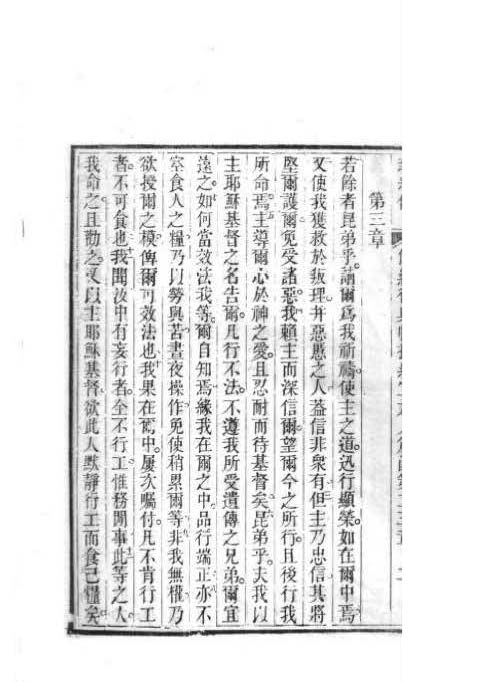 第三章
若餘者昆弟乎請爾爲我祈禱使主之道迅行顯榮如在爾中焉
又使我獲救於叛理并惡愚之人益信非衆有但主乃忠信其將
堅爾護爾免受諸惡我賴主而深信爾望爾今之所行且後行我
所命焉主導爾心於神之愛且忍耐而待基督矣昆弟乎夫我以
主耶穌基督之名告爾凡行不法不遵我所受遺傳之兄弟爾宜
遠之如何當效法我等爾自知焉緣我在爾之中品行端正亦不
空食人之糧乃以勞與苦晝夜操作免使稍累爾等非我無權乃
欲授爾之模俾爾可效法也我果在爾中屢次囑付凡不肯行工
者不可食也我聞汝中有妄行者全不行工惟務閒事此等之人
我命之且勸之又以主耶穌基督欲此人默靜行工而食己糧矣